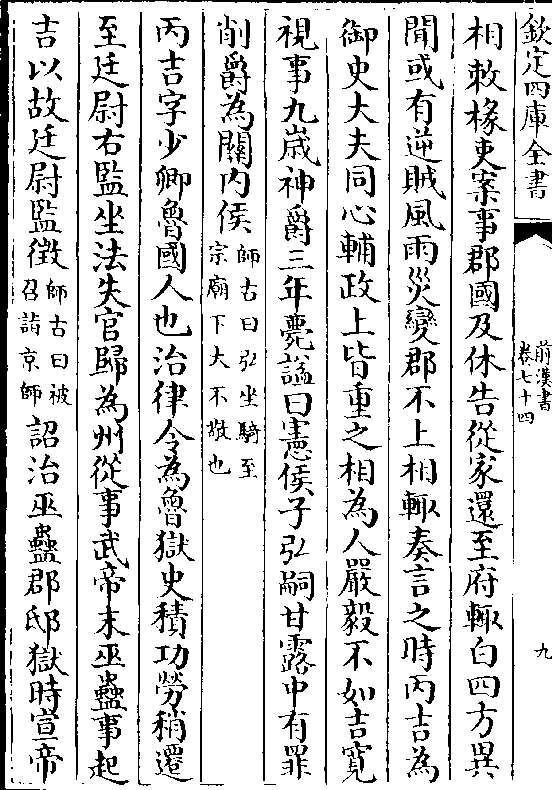 欽定四庫全書
前漢書
卷七十四
九
相敕掾吏案事郡國及休告從家還至府輒白四方異
聞或有逆賊風雨災變郡不上相輒奏言之時丙吉為
御史大夫同心輔政上皆重之相為人嚴毅不如吉寛
視事九歳神爵三年薨諡曰憲侯子弘嗣甘露中有罪
削爵為關内侯師古曰弘坐騎至
宗廟下大不敬也
丙吉字少卿魯國人也治律令為魯獄史積功勞稍遷
至廷尉右監坐法失官歸為州從事武帝末巫蠱事起
吉以故廷尉監徵師古曰被
召詣京師詔治巫蠱郡邸獄時宣帝